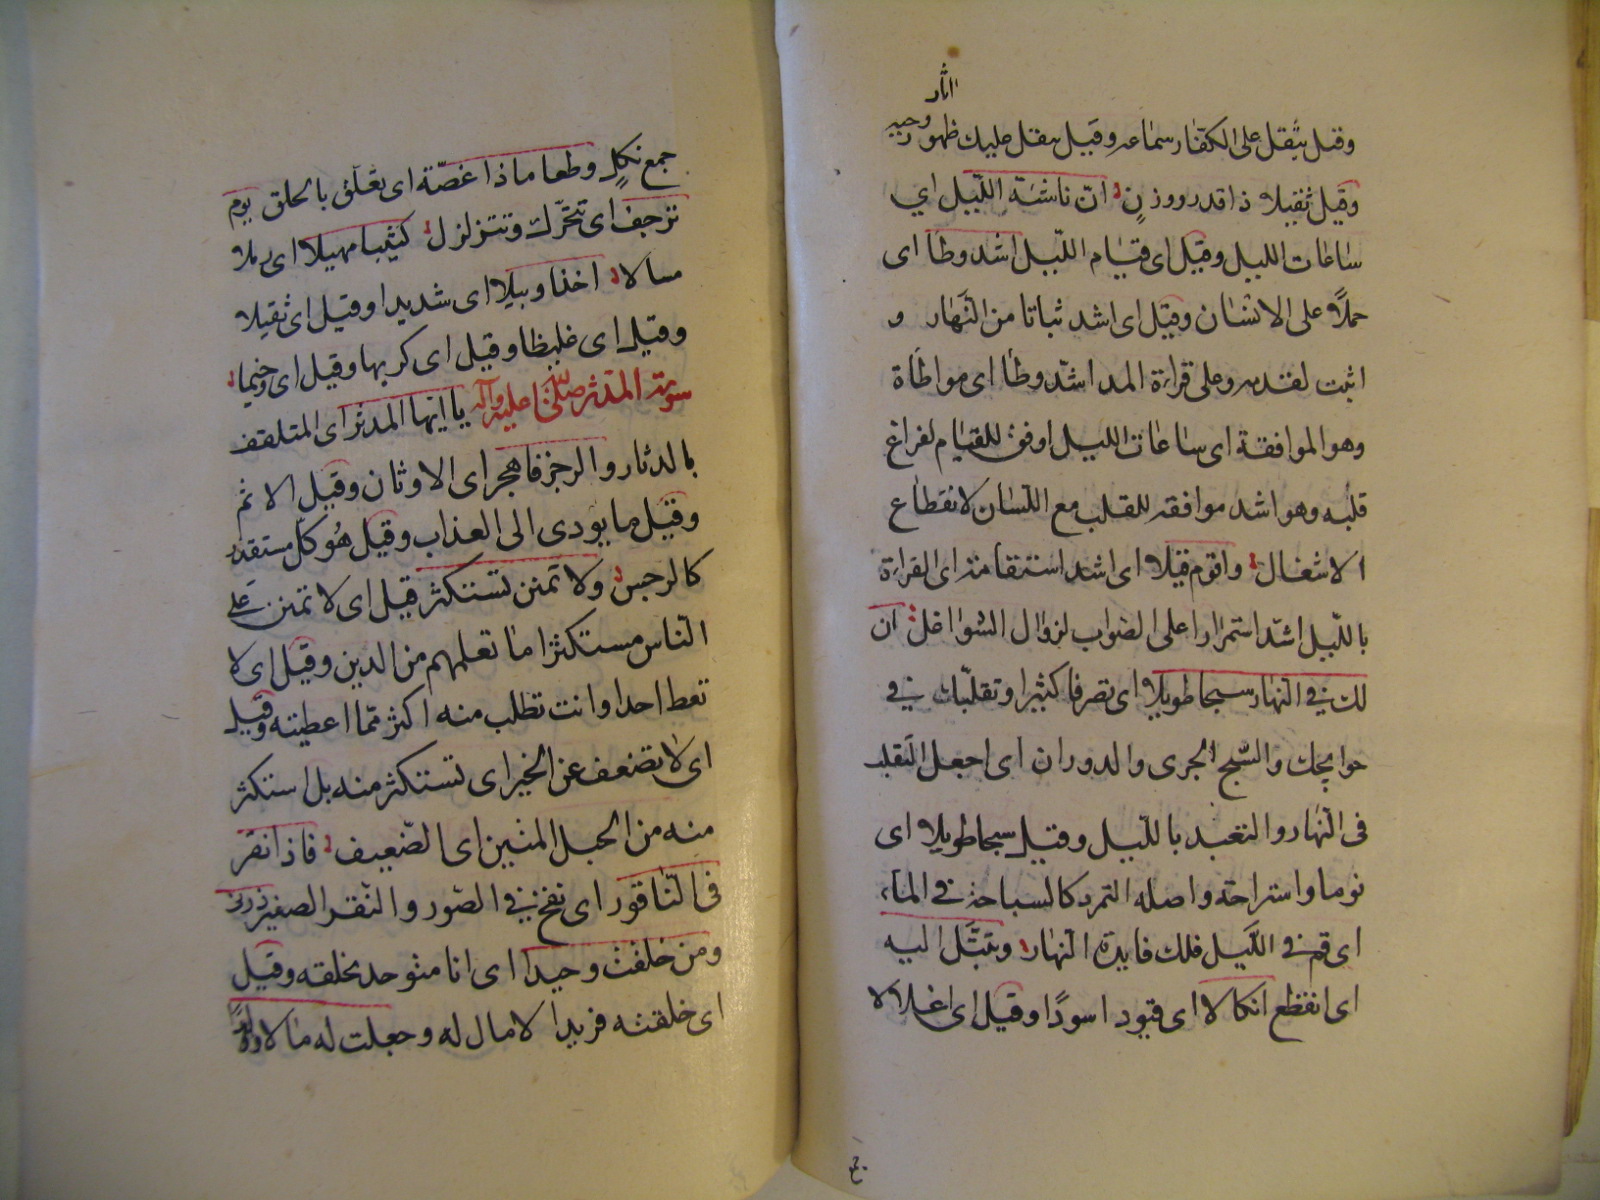 اثار
وقيل يثقل على الكفار سماعه وقيل يثقل عليك ظهور وحيه
وقيل ثقيلا ذا قدر ووزن ان ناشئة الليل اي
ساعات الليل وقيل اى قيام الليل اشد وطأ اى
حملاً على الانسان وقيل اى اشد ثباتا من النهار و
اثبت لقدمه وعلى قراءة المد اشد وطأ اى مواطأة
وهو الموافقة اى ساعات الليل اوفق للقيام لفراغ
قلبه وهو اشد موافقة للقلب مع اللسان لانقطاع
الاشغال واقوم قيلا اى اشد استقامة اى القراءة
بالليل اشد استمرارا على الصواب لزوال الشواغل ان
لك في النهار سبحا طويلا اى تصرفا كثيرا وتقلبك في
حوايجك والسبح الجرى والدوران اى اجعل التقلب
فى النهار والتعبد بالليل وقيل سبحا طويلا اى
نوما واستراحة واصله التمرد كالسباحة في الماء
اى قم في الليل فلك فايدة النهار وتبتل اليه
اى انقطع انكالا اى قيود اسودًا وقيل اى اغلالا
جمع نكل وطعاما ذا غصة اى يعلق بالحلق يوم
ترجف اى تتحرك وتتزلزل كثيبا مهيلا اى رملا
سالا اخذا وبيلا اى شديدا وقيل اى ثقيلا
وقيل اى غليظا وقيل اى كريها وقيل اى وخيما
سورة المدثر صلى الله عليه وآله يا ايها المدثر اى المتلفف
بالدثار والرجز فاهجر اى الاوثان وقيل الاثم
وقيل ما يودى الى العذاب وقيل هو كل مستقذر
كالرجس ولا تمنن تستكثر قيل اى لا تمنن على
الناس مستكثرا ما تعلمهم من الدين وقيل اى لا
تعط احدا وانت تطلب منه اكثر مما اعطيته وقيل
اى لا تضعف عن الخير اى تستكثر منه بل استكثر
منه من الحبل المنين اى الضعيف فاذا نقر
فى الناقور اى نفخ في الصور والنقر الصفير ذرنى
ومن خلقت وحيدا اى انا متوحد بخلقه وقيل
اى خلقته فريدا لا مال له وجعلت له مالا